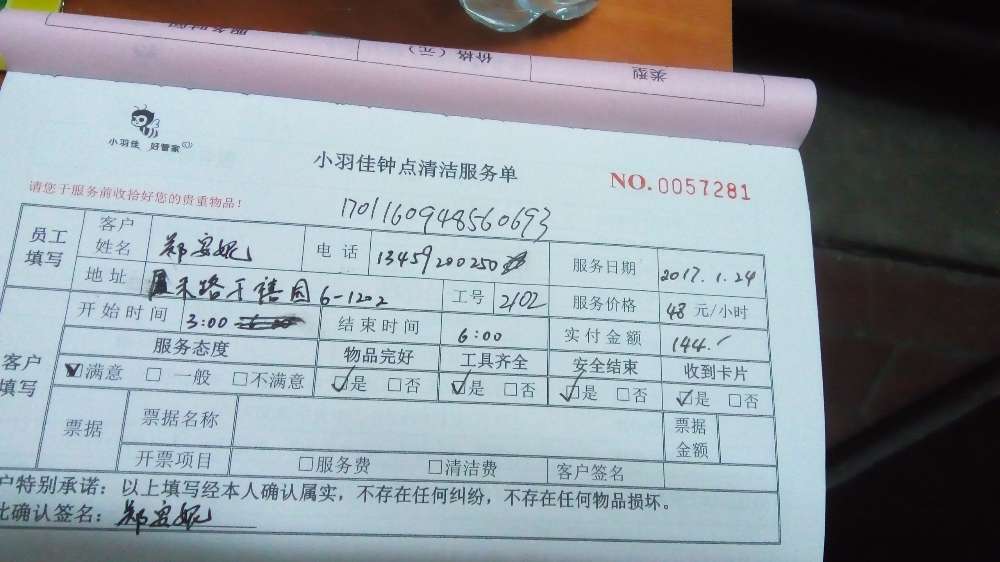 服务时间 价格（元） 类型
小羽佳 好管家
小羽佳钟点清洁服务单
NO.0057281
请您于服务前收拾好您的贵重物品！
1701160948560693
员工填写 客户姓名 郑安妮 电话 13459200250 服务日期 2017.1.24
地址 禾路千禧园6-1202 工号 2102 服务价格 48 元/小时
客户填写 开始时间 3:00 结束时间 6:00 实付金额 144.
服务态度 物品完好 工具齐全 安全结束 收到卡片
☑满意 □一般 □不满意 ☑是 □否 ☑是 □否 ☑是 □否 ☑是 □否
票据 票据名称 票据金额
开票项目 □服务费 □清洁费 客户签名
户特别承诺：以上填写经本人确认属实，不存在任何纠纷，不存在任何物品损坏。
此确认签名：郑安妮